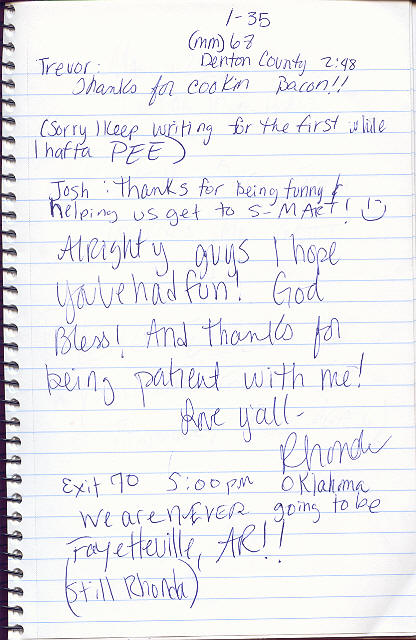 I-35
(mm) 67
Trevor: Denton County 2:48
Thanks for cookin Bacon!!
(Sorry I keep writing for the first while
I hafta PEE)
Josh: Thanks for being funny &
helping us get to S-MArt! :)
Alrighty guys I hope
you've had fun! God
Bless! And thanks for
being patient with me!
Love y'all-
Rhonda
Exit 70 5:00pm Oklahoma
We are NEVER going to be
Fayetteville, AR!!
(Still Rhonda)